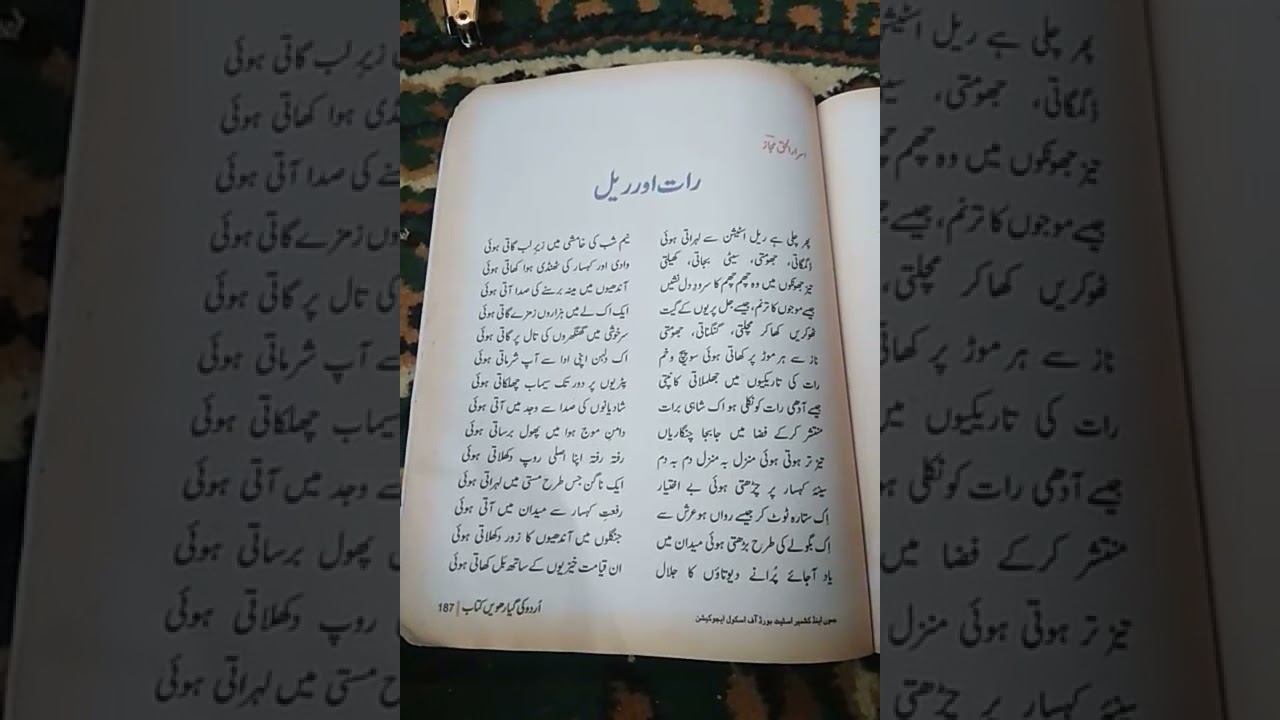 اسرار الحق مجاز
رات اور ریل
پھر چلی ہے ریل اسٹیشن سے لہراتی ہوئی نیم شب کی خامشی میں زیرِ لب گاتی ہوئی
ڈگمگاتی، جھومتی، سیٹی بجاتی، کھیلتی وادی اور کہسار کی ٹھنڈی ہوا کھاتی ہوئی
تیز جھونکوں میں وہ چھم چھم کا سرودِ دل نشیں آندھیوں میں مینہ برسنے کی صدا آتی ہوئی
جیسے موجوں کا ترنم، جیسے جل پریوں کے گیت ایک اک لے میں ہزاروں زمزمے گاتی ہوئی
ٹھوکریں کھا کر مچلتی، گنگناتی، جھومتی سرخوشی میں گھنگھروں کی تال پر گاتی ہوئی
ناز سے ہر موڑ پر کھاتی ہوئی سو پیچ و خم اک دلہن اپنی ادا سے آپ شرماتی ہوئی
رات کی تاریکیوں میں جھلملاتی کانپتی پٹریوں پر دور تک سیماب چھلکاتی ہوئی
جیسے آدھی رات کو نکلی ہو اک شاہی برات شادیانوں کی صدا سے وجد میں آتی ہوئی
منتشر کرکے فضا میں جابجا چنگاریاں دامنِ موجِ ہوا میں پھول برساتی ہوئی
تیز تر ہوتی ہوئی منزل بہ منزل دم بہ دم رفتہ رفتہ اپنا اصلی روپ دکھلاتی ہوئی
سینۂ کہسار پر چڑھتی ہوئی بے اختیار ایک ناگن جس طرح مستی میں لہراتی ہوئی
اِک ستارہ ٹوٹ کر جیسے رواں ہو عرش سے رفعتِ کہسار سے میدان میں آتی ہوئی
اِک بگولے کی طرح بڑھتی ہوئی میدان میں جنگلوں میں آندھیوں کا زور دکھلاتی ہوئی
یاد آجائے پُرانے دیوتاؤں کا جلال ان قیامت خیزیوں کے ساتھ بَل کھاتی ہوئی
جموں اینڈ کشمیر اسٹیٹ بورڈ آف اسکول ایجوکیشن
اُردو کی گیارھویں کتاب | 187